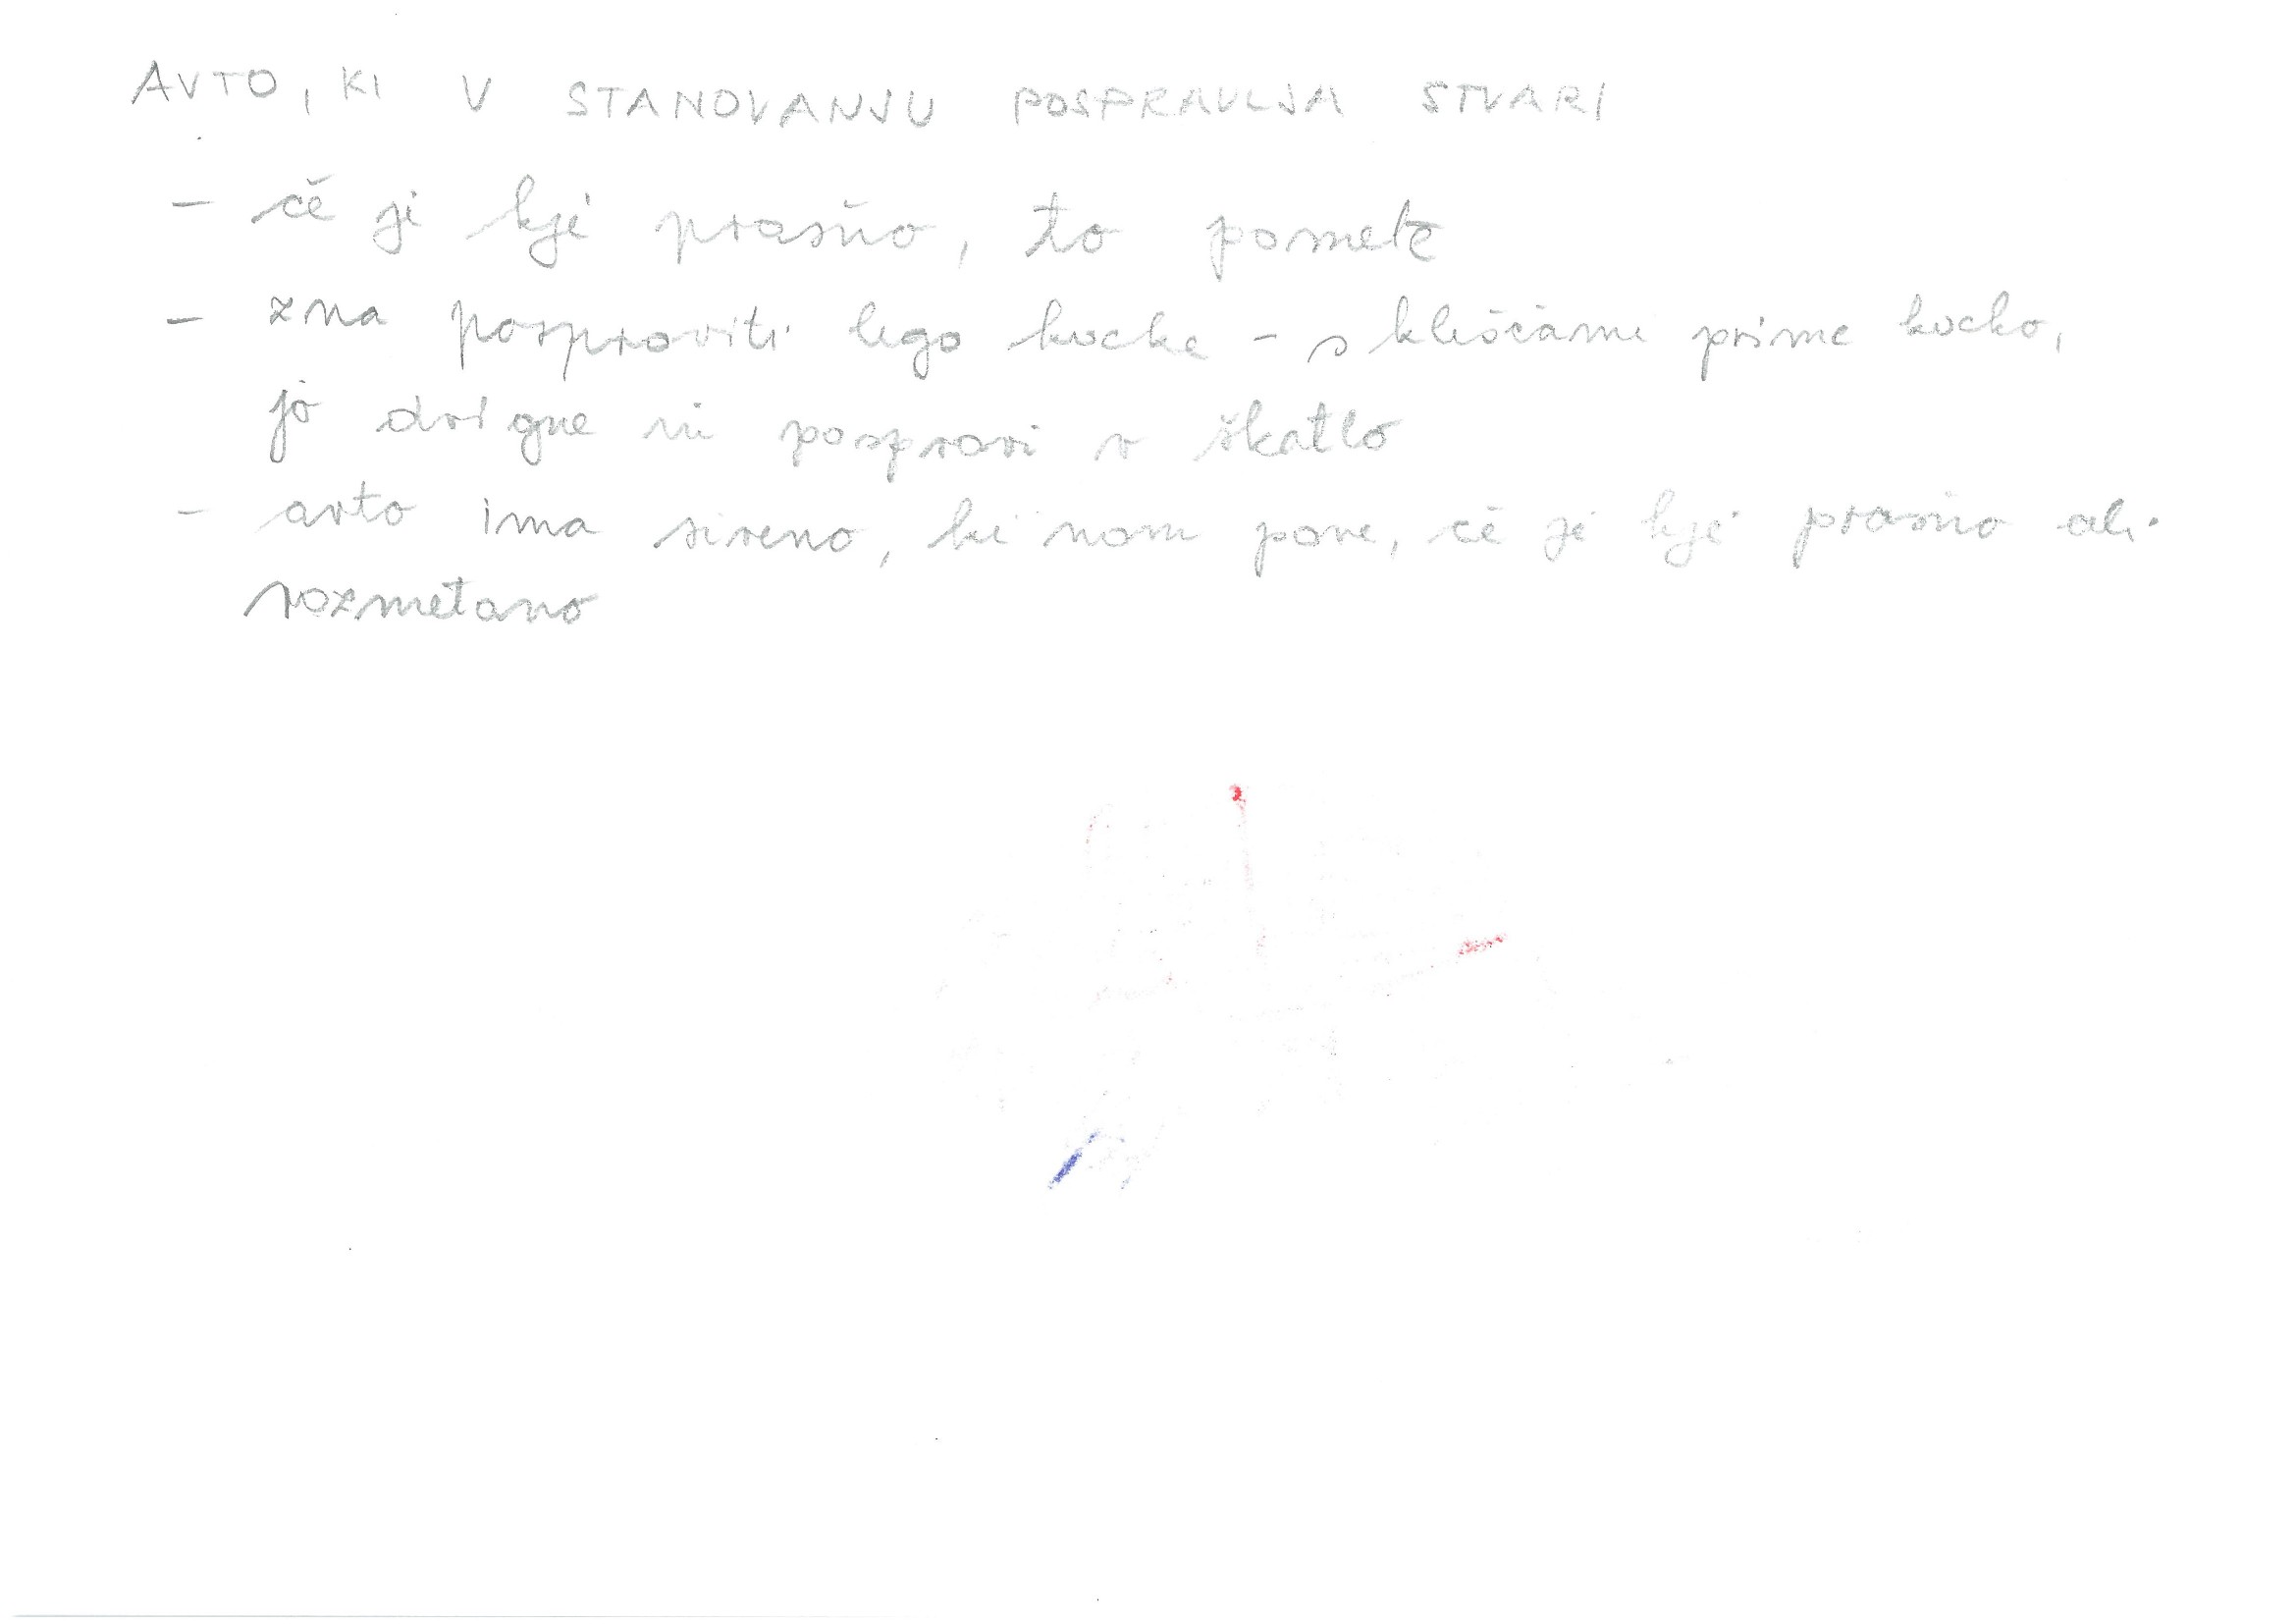 AVTO, KI V STANOVANJU POSPRAVLJA STVARI
- če je kje prašno, to pomete
- zna pospraviti lego kocke - s kleščami prime kocko,
jo dvigne in pospravi v škatlo
- avto ima sireno, ki nam pove, če je kje prašno ali
razmetano